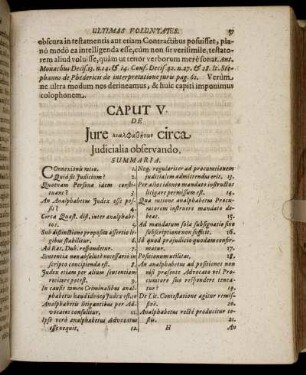 ULTIMAS VOLUNTATES. 57
obscura in testamentis aut etiam Contractibus posuisset, pla-
nò modò ea intelligenda esse, cùm non sit verisimile, testato-
rem aliud voluisse, quàm ut tenor verborum merè sonat. Ant.
Monachus Decis. 13. n. 14. & 14. Conf. Decis. 22. n. 27. & 18. It. Ste-
phanus de Phedericis de interpretatione juris pag. 61. Verùm
ne ultra modum nos detineamus, & huic capiti imponimus
colophonem.
CAPUT V.
DE
Jure circa
Judicialia observando.
SUMMARIA.
COnnexionis ratio. 1.
Quid sit Judicium? 2.
Quotnam Personæ idem consti-
tuant? 3.
An Analphabetus Judex esse pos-
sit? 4.
Circa Quæst. dist. inter analphabe-
tos. 5.
Sub distinctione proposita assertio le-
gibus stabilitur. 6.
Ad Rat. Dub. respondetur. 7.
Sententia non absolutè necessariò in
scriptis concipienda est. 8.
Judex etiam per alium sententiam
recitare potest. 9.
In causis tamen Criminalibus anal-
phabetus haud idoneus Judex est. 10.
Analphabetis litigantibus per Ad-
vocatos consulitur. 11.
Ipse verò analphabetus Advocatus
esse nequit, 12.
Neq; regulariter ad procurationem
judicialem admittendus erit. 13.
Per alios tamen mandato instructus
litigare permissum est. 14.
Qua ratione analphabetus Procu-
ratorem instruere mandato de-
beat. 15.
Ad mandatum sola subsignatio sive
subscriptio non sufficit. 16.
Id quod præjudicio quodam confir-
matur. 17.
Positionum utilitas. 18.
An analphabetus ad positiones non
nisi præsente Advocato vel Pro-
curatore suo respondere tenea-
tur? 19.
De Lit. Contestatione agitur remis-
sivè. 20.
Analphabetus rectè producitur te-
stis. 21.
H An